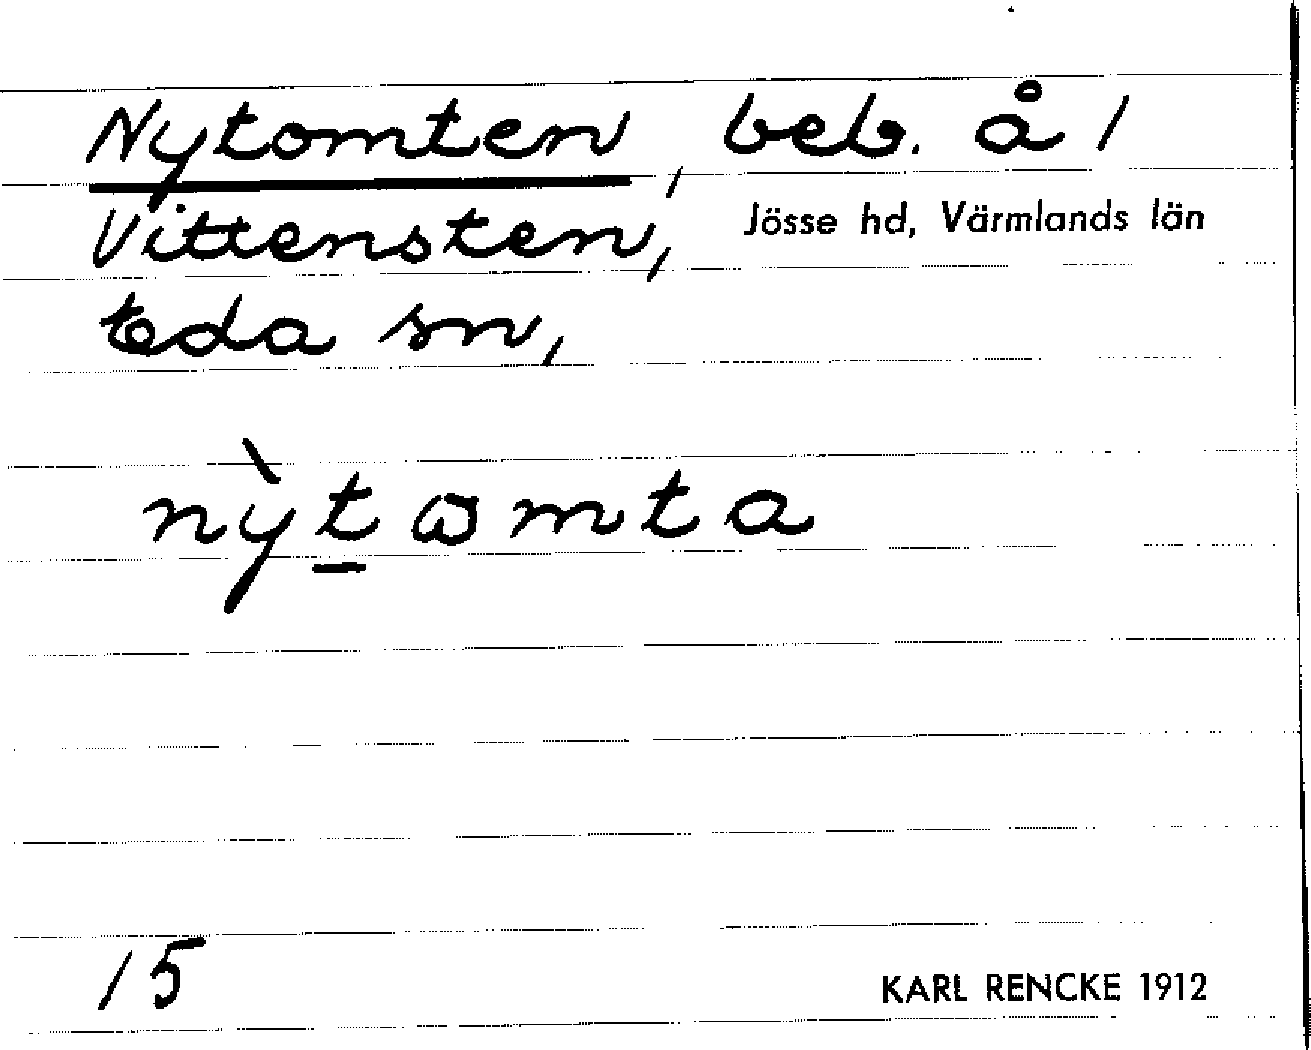 Nytomten, beb. å 1
Vittensten, Jösse hd, Värmlands län
Eda sn,
nỳt̲ɷmta
15
KARL RENCKE 1912